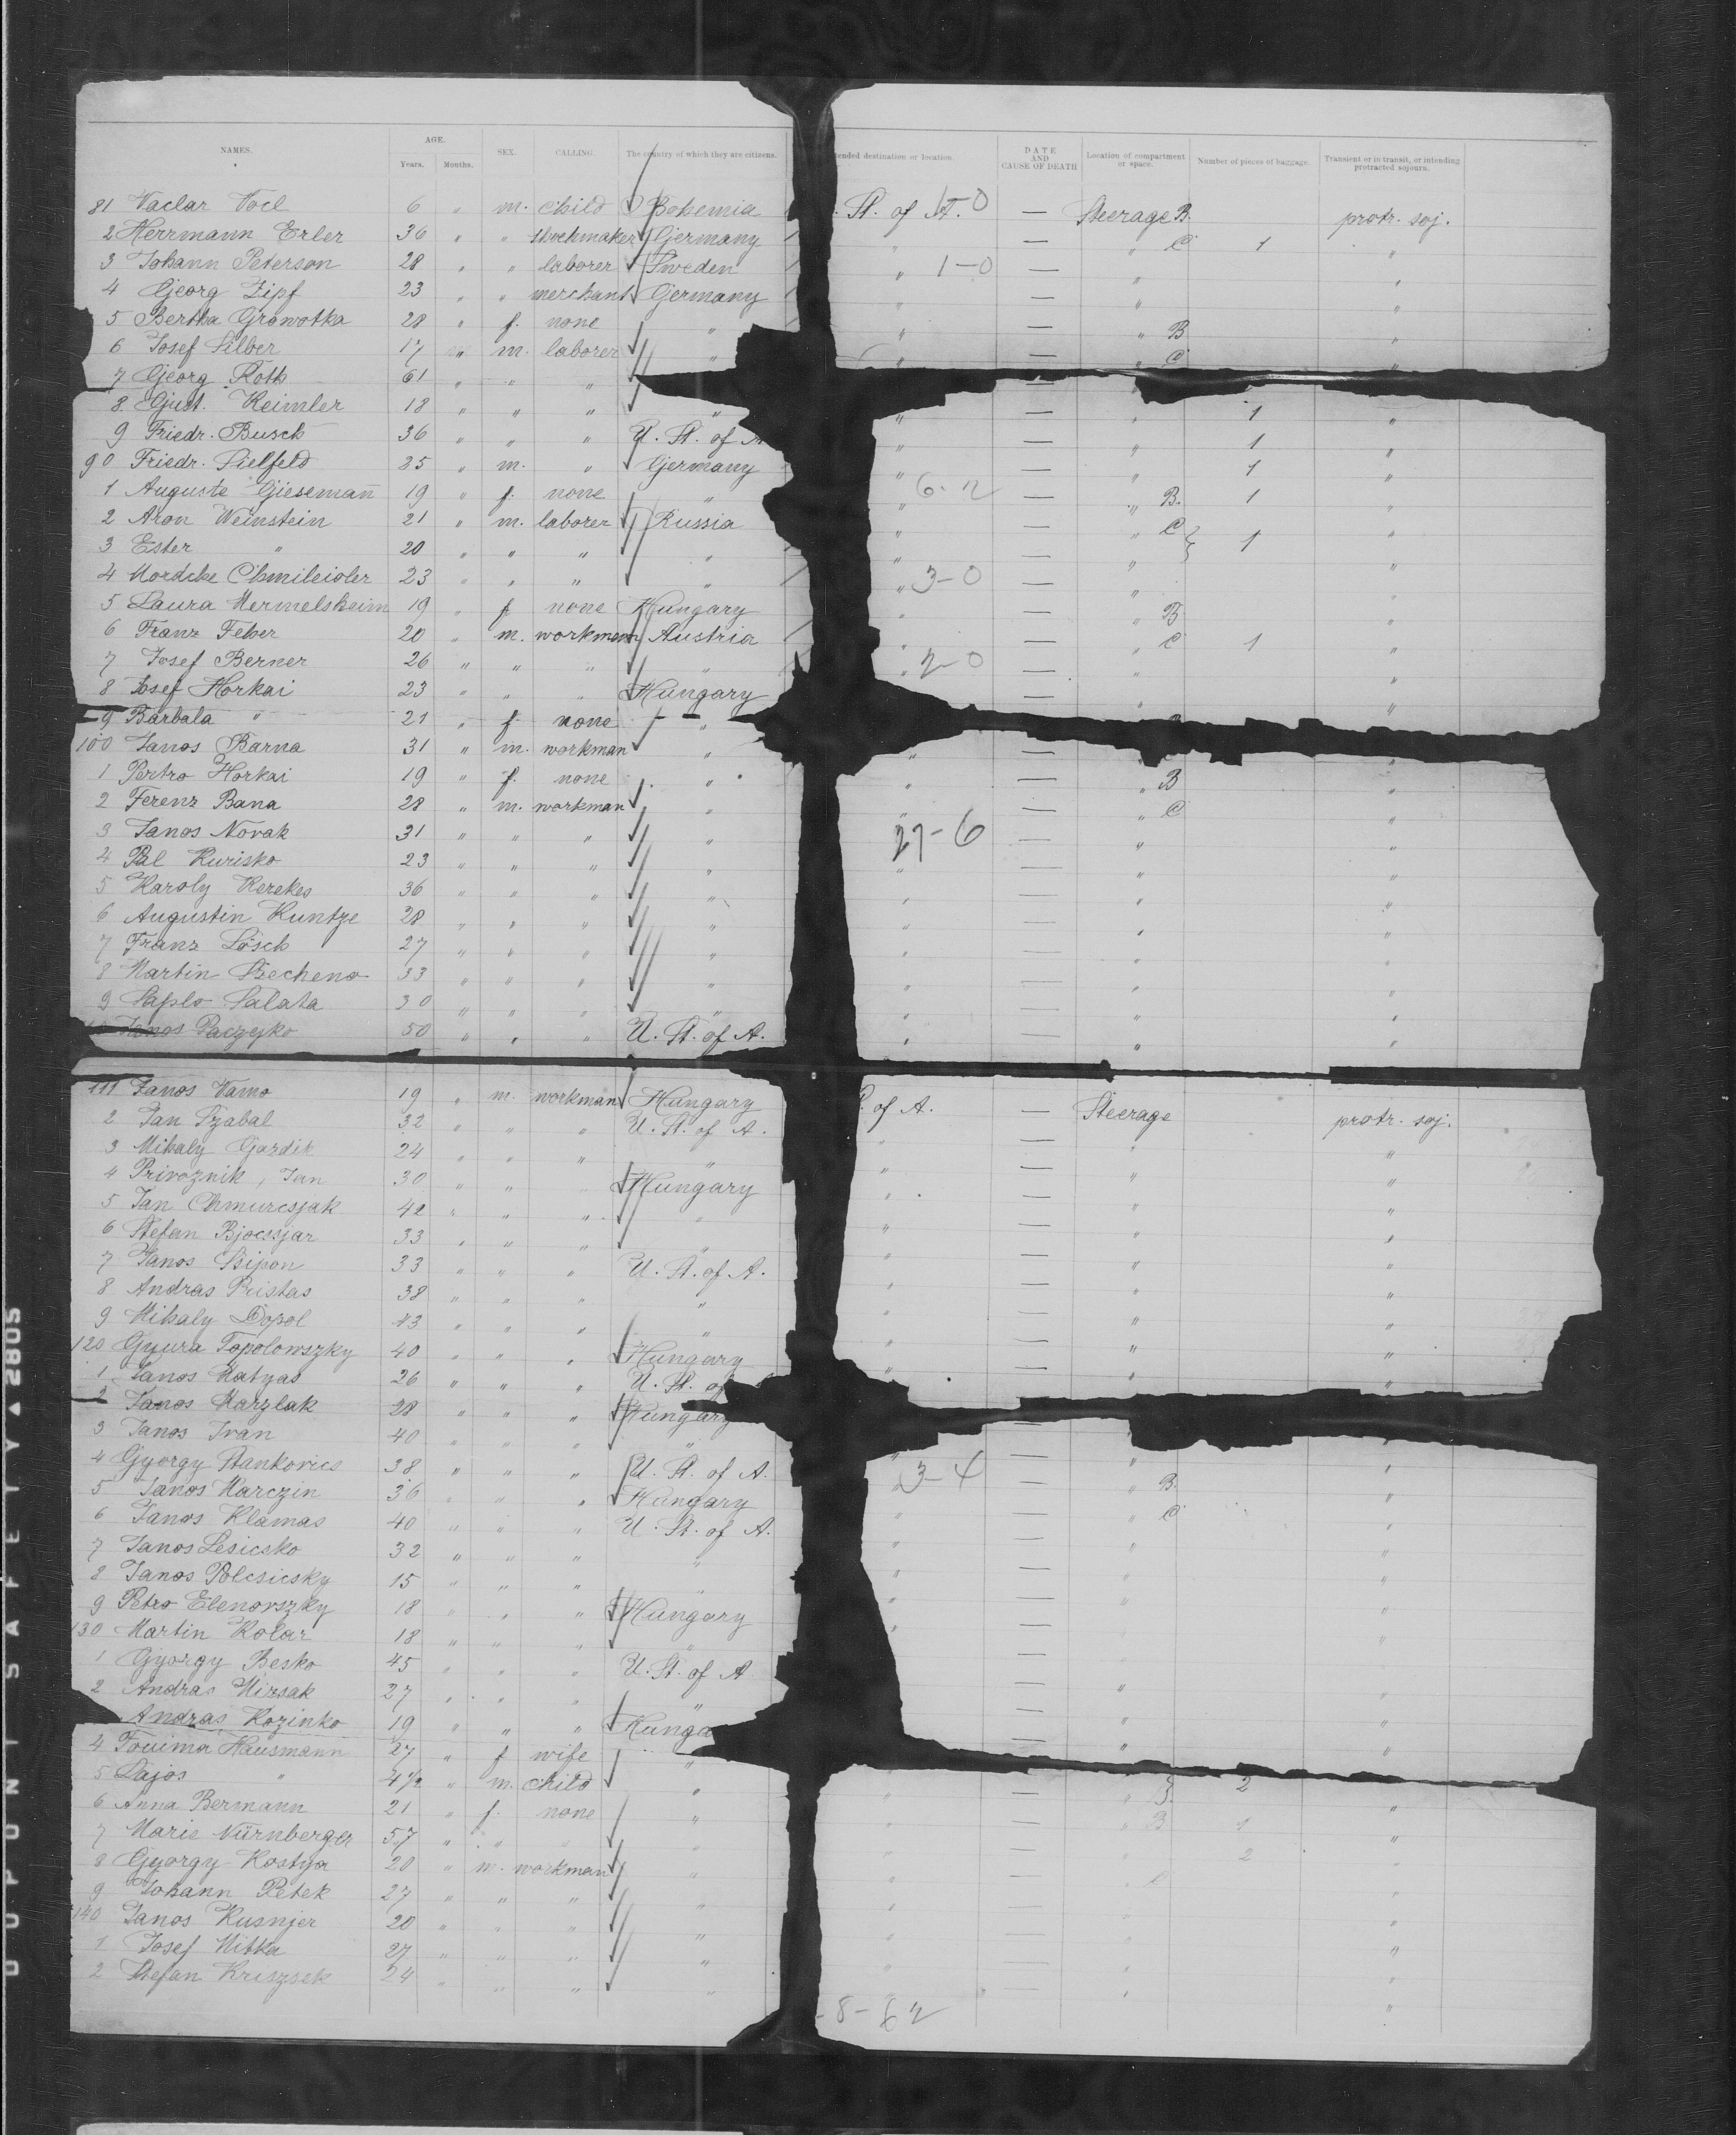 NAMES. AGE. Years. Months. SEX. CALLING. The country of which they are citizens. ended destination or location. DATE AND CAUSE OF DEATH Location of compartment or space. Number of pieces of baggage. Transient or in transit, or intending protracted sojourn.
81 Vaclav Vocl 6 " m. child Bohemia St. of A. 1-0 — Steerage B. protr. soj.
2 Herrmann Erler 36 " " shoehmaker Germany " — " C 1 "
3 Johann Peterson 28 " " laborer Sweden " 1-0 — " "
4 Georg Zipf 23 " " merchant Germany " — " "
5 Bertha Grawotka 28 " f. none " " — " B "
6 Josef Silber 17 " m. laborer " " — " C "
7 Georg Roth 61 " " "
8 Gust. Reimler 18 " " " " " — " 1 "
9 Friedr. Busch 36 " " " U. St. of A " — " 1 "
90 Friedr. Sielfeld 25 " m. " Germany " — " 1 "
1 Auguste Giesemañ 19 " f. none " " 6-12 — " B. 1 "
2 Aron Weinstein 21 " m. laborer Russia " — " C } 1 "
3 Ester " 20 " " " " " — " "
4 Mordche Chmileioler 23 " " " " " 3-0 — " "
5 Laura Mermelsheim 19 " f. none Hungary " — " B "
6 Franz Feher 20 " m. workmem Austria " — " C 1 "
7 Josef Berner 26 " " " " " 2-0 — " "
8 Josef Horkai 23 " " " Hungary — " "
9 Barbala " 21 " f. none "
100 Janos Barna 31 " m. workman " " — " "
1 Pertro Horkai 19 " f. none " " — " B "
2 Ferenz Bana 28 " m. workman " " — " C "
3 Janos Novak 31 " " " " 27-6 — " "
4 Pal Kurisko 23 " " " " " — " "
5 Karoly Kerekes 36 " " " " " — " "
6 Augustin Kuntze 28 " " " " " — " "
7 Franz Lösch 27 " " " " " — " "
8 Martin Secheno 33 " " " " " — " "
9 Saplo Salata 30 " " " " " — " "
Janos Paczejko 50 " " " U. St. of A. " — " "
111 Janos Vamo 19 " m. workman Hungary . of A. — Steerage protr. soj.
2 Jan Szabal 32 " " " U. St. of A. " — " "
3 Mihaly Gazdik 24 " " " " " — " "
4 Privoznik, Jan 30 " " " Hungary " — " "
5 Jan Chmurcsjak 42 " " " " " — " "
6 Stefan Bjocssjar 33 " " " " " — " "
7 Janos Csipon 33 " " " U. St. of A. " — " "
8 Andras Pristas 38 " " " " " — " "
9 Mihaly Dopol 43 " " " " " — " "
120 Gyura Topolowszky 40 " " " Hungary " — " "
1 Janos Matyas 26 " " " U. St. of " — " "
2 Janos Marzlak 28 " " " Hungary
3 Janos Ivan 40 " " " " — " "
4 Gyorgy Stankovics 38 " " " U. St. of A. " 3-4 — " "
5 Janos Marczin 36 " " " Hungary — " B. "
6 Janos Klamas 40 " " " U. St. of A. " — " C "
7 Janos Lesicsko 32 " " " " " — " "
8 Janos Polcsicsky 15 " " " " " — " "
9 Petro Elenovszky 18 " " " Hungary " — " "
130 Martin Kolar 18 " " " " " — "
1 Gyorgy Besko 45 " " " U. St. of A —
2 Andras Mizsak 27 " " " " — " "
Andras Kozinko 19 " " " Hunga — " "
4 Hausmann 27 " f wife " — " "
5 Lajos " 4½ " m. child " " } 2
6 Anna Bermann 21 " f. none " " — " B 1 "
7 Marie Nürnberger 57 " " " " — " 2 "
8 Gyorgy Kostya 20 " m. workman " " — " C "
9 Johann Petek 27 " " " " " — "
140 Janos Kusnjer 20 " " " " " — " "
1 Josef Mitka 27 " " " " " — " "
2 Stefan Kriszsek 24 " " " " " — " "
8-62
DUPONT SAFETY ▲ 2805